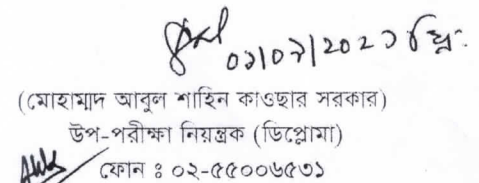 ০১/০৭/২০২১ খ্রি:
(মোহাম্মদ আবুল শাহিন কাওছার সরকার)
উপ-পরীক্ষা নিয়ন্ত্রক (ডিপ্লোমা)
ফোন ঃ ০২-৫৫০০৬৫৩১